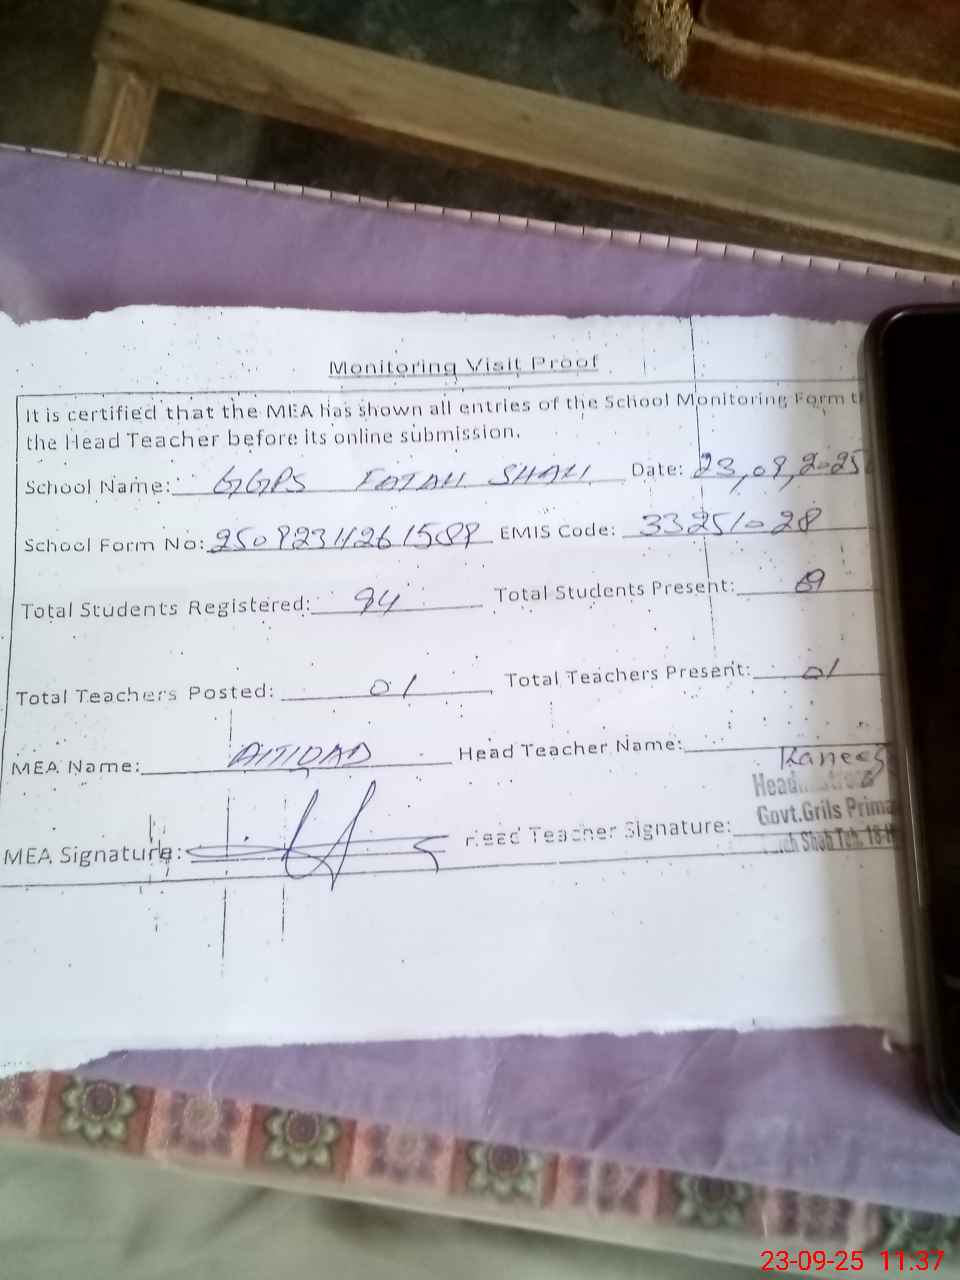 Monitoring Visit Proof
It is certified that the MEA has shown all entries of the School Monitoring Form
the Head Teacher before its online submission.
School Name: GGPS FATAH SHAH Date: 23,09,2025
School Form No: EMIS Code: 33251028
Total Students Registered: 94 Total Students Present: 69
Total Teachers Posted: 01 Total Teachers Present: 01
MEA Name: Head Teacher Name: Kaneez
Govt.Grils Prima
MEA Signature: Head Teacher Signature:
Shah Teh.
23-09-25 11:37